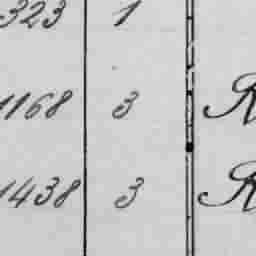 323 1
1168 3
1438 3